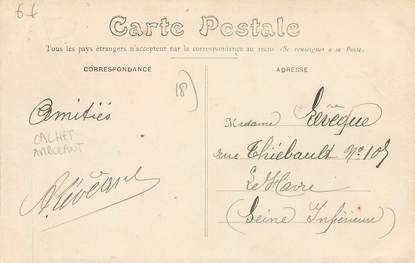 6 €
Carte Postale
Tous les pays étrangers n'acceptent par la correspondance au recto (Se renseigner à la Poste.
CORRESPONDANCE
Amitiés
CACHET
AMBULANT
18
ADRESSE
Madame Lévêque
rue Thiébault No 105
Le Havre
(Seine Inférieure)